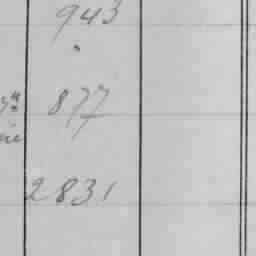 943
877
2831